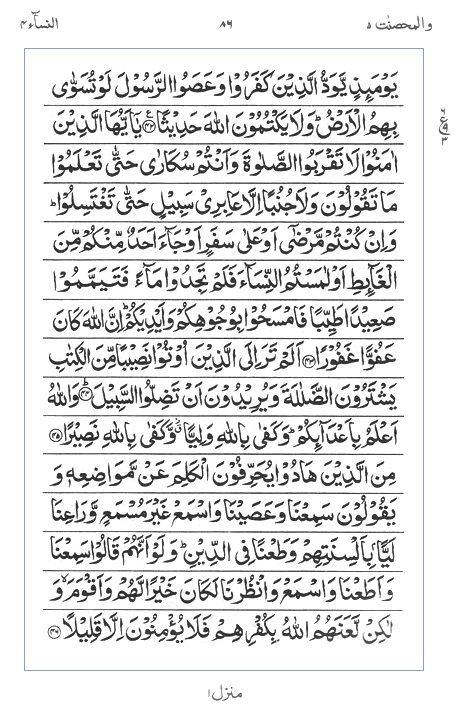 والمحصنت ۵ ۸۶ النسآء ۴
يَوْمَىِٕذٍ يَّوَدُّ الَّذِيْنَ كَفَرُوْا وَعَصَوُا الرَّسُوْلَ لَوْ تُسَوّٰى
بِهِمُ الْاَرْضُ ؕ وَلَا يَكْتُمُوْنَ اللّٰهَ حَدِيْثًا ﴿۴۲﴾ يٰۤاَيُّهَا الَّذِيْنَ
اٰمَنُوْا لَا تَقْرَبُوا الصَّلٰوةَ وَاَنْتُمْ سُكَارٰى حَتّٰى تَعْلَمُوْا
مَا تَقُوْلُوْنَ وَلَا جُنُبًا اِلَّا عَابِرِىْ سَبِيْلٍ حَتّٰى تَغْتَسِلُوْا ؕ
وَاِنْ كُنْتُمْ مَّرْضٰۤى اَوْ عَلٰى سَفَرٍ اَوْ جَآءَ اَحَدٌ مِّنْكُمْ مِّنَ
الْغَآىِٕطِ اَوْ لٰمَسْتُمُ النِّسَآءَ فَلَمْ تَجِدُوْا مَآءً فَتَيَمَّمُوْا
صَعِيْدًا طَيِّبًا فَامْسَحُوْا بِوُجُوْهِكُمْ وَاَيْدِيْكُمْ ؕ اِنَّ اللّٰهَ كَانَ
عَفُوًّا غَفُوْرًا ﴿۴۳﴾ اَلَمْ تَرَ اِلَى الَّذِيْنَ اُوْتُوْا نَصِيْبًا مِّنَ الْكِتٰبِ
يَشْتَرُوْنَ الضَّلٰلَةَ وَيُرِيْدُوْنَ اَنْ تَضِلُّوا السَّبِيْلَ ﴿۴۴﴾ وَاللّٰهُ
اَعْلَمُ بِاَعْدَآىِٕكُمْ ؕ وَكَفٰى بِاللّٰهِ وَلِيًّا وَّكَفٰى بِاللّٰهِ نَصِيْرًا ﴿۴۵﴾
مِنَ الَّذِيْنَ هَادُوْا يُحَرِّفُوْنَ الْكَلِمَ عَنْ مَّوَاضِعِهٖ وَ
يَقُوْلُوْنَ سَمِعْنَا وَعَصَيْنَا وَاسْمَعْ غَيْرَ مُسْمَعٍ وَّرَاعِنَا
لَيًّۢا بِاَلْسِنَتِهِمْ وَطَعْنًا فِى الدِّيْنِ ؕ وَلَوْ اَنَّهُمْ قَالُوْا سَمِعْنَا
وَاَطَعْنَا وَاسْمَعْ وَانْظُرْنَا لَكَانَ خَيْرًا لَّهُمْ وَاَقْوَمَ ۙ وَ
لٰكِنْ لَّعَنَهُمُ اللّٰهُ بِكُفْرِهِمْ فَلَا يُؤْمِنُوْنَ اِلَّا قَلِيْلًا ﴿۴۶﴾
منزل ۱